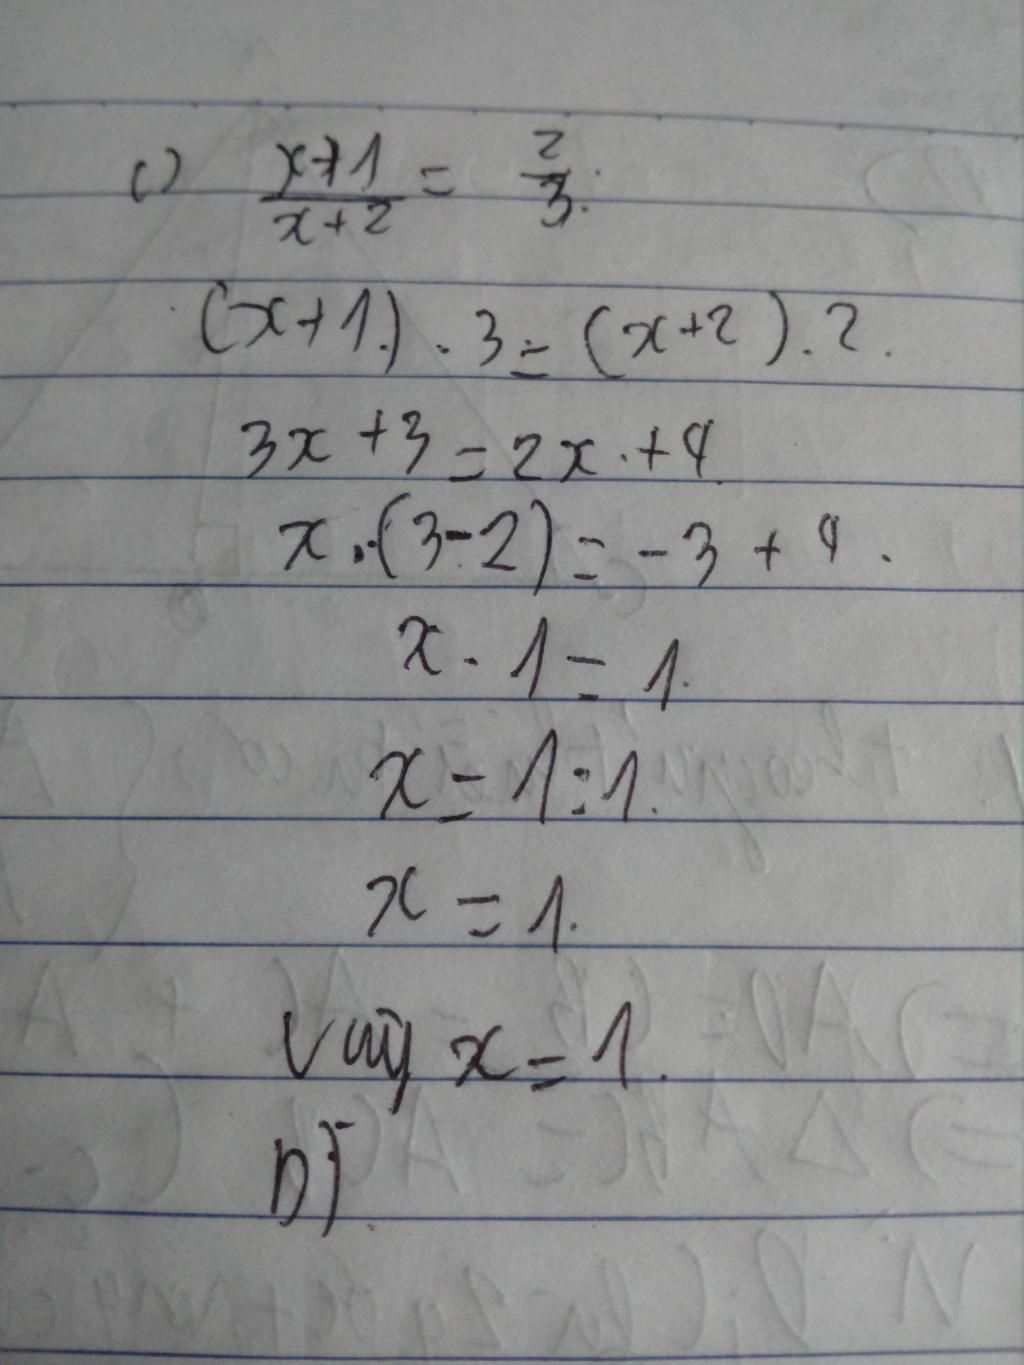 c) x+1/x+2 = 2/3.
(x+1.) . 3 = (x+2) . 2.
3x + 3 = 2x . + 4
x . (3-2) = - 3 + 4 .
x . 1 = 1.
x = 1 : 1.
x = 1.
Vậy x = 1.
D)